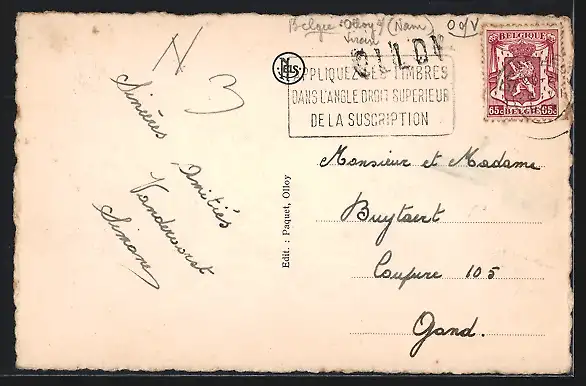 Belgie : Olloy s/ (Nam)
Viroin
O s/V
OLLOY
APPLIQUEZ LES TIMBRES
DANS L'ANGLE DROIT SUPÉRIEUR
DE LA SUSCRIPTION
BELGIQUE
65c BELGIË 65c
NELS
N 3
Sincères
Amitiés
Vandervorst
Simone
Edit. : Paquet, Olloy
Monsieur et Madame
Buytaert
Coupure 105
Gand.